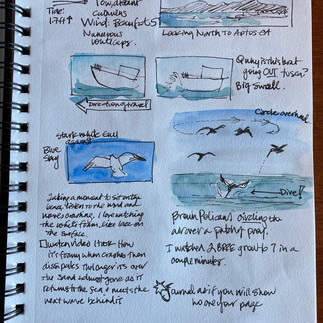 Time:
1747
Cumulus
Wind: Beaufort 5
Numerous
whitecaps.
Looking North to Aptos
Why is this boat
going OUT to sea?
Big swell.
Direction of travel
Circle overhead
Stark white Gull
against
Blue
Sky
Dive!!
Brown Pelicans circling the
air over a patch of prey.
I watched 2 BRPE grow to 7 in a
couple minutes.
Taking a moment to sit on the
sand, listen to the wind and
waves crashing, I love watching
the white foam, like lace on
the surface.
Watch video I took - How
it's foamy when crashes then
dissipates the larger it is over
the sand almost gone as it
returns to the sea & meets the
next wave behind it
Journal as if you will show
no one your page